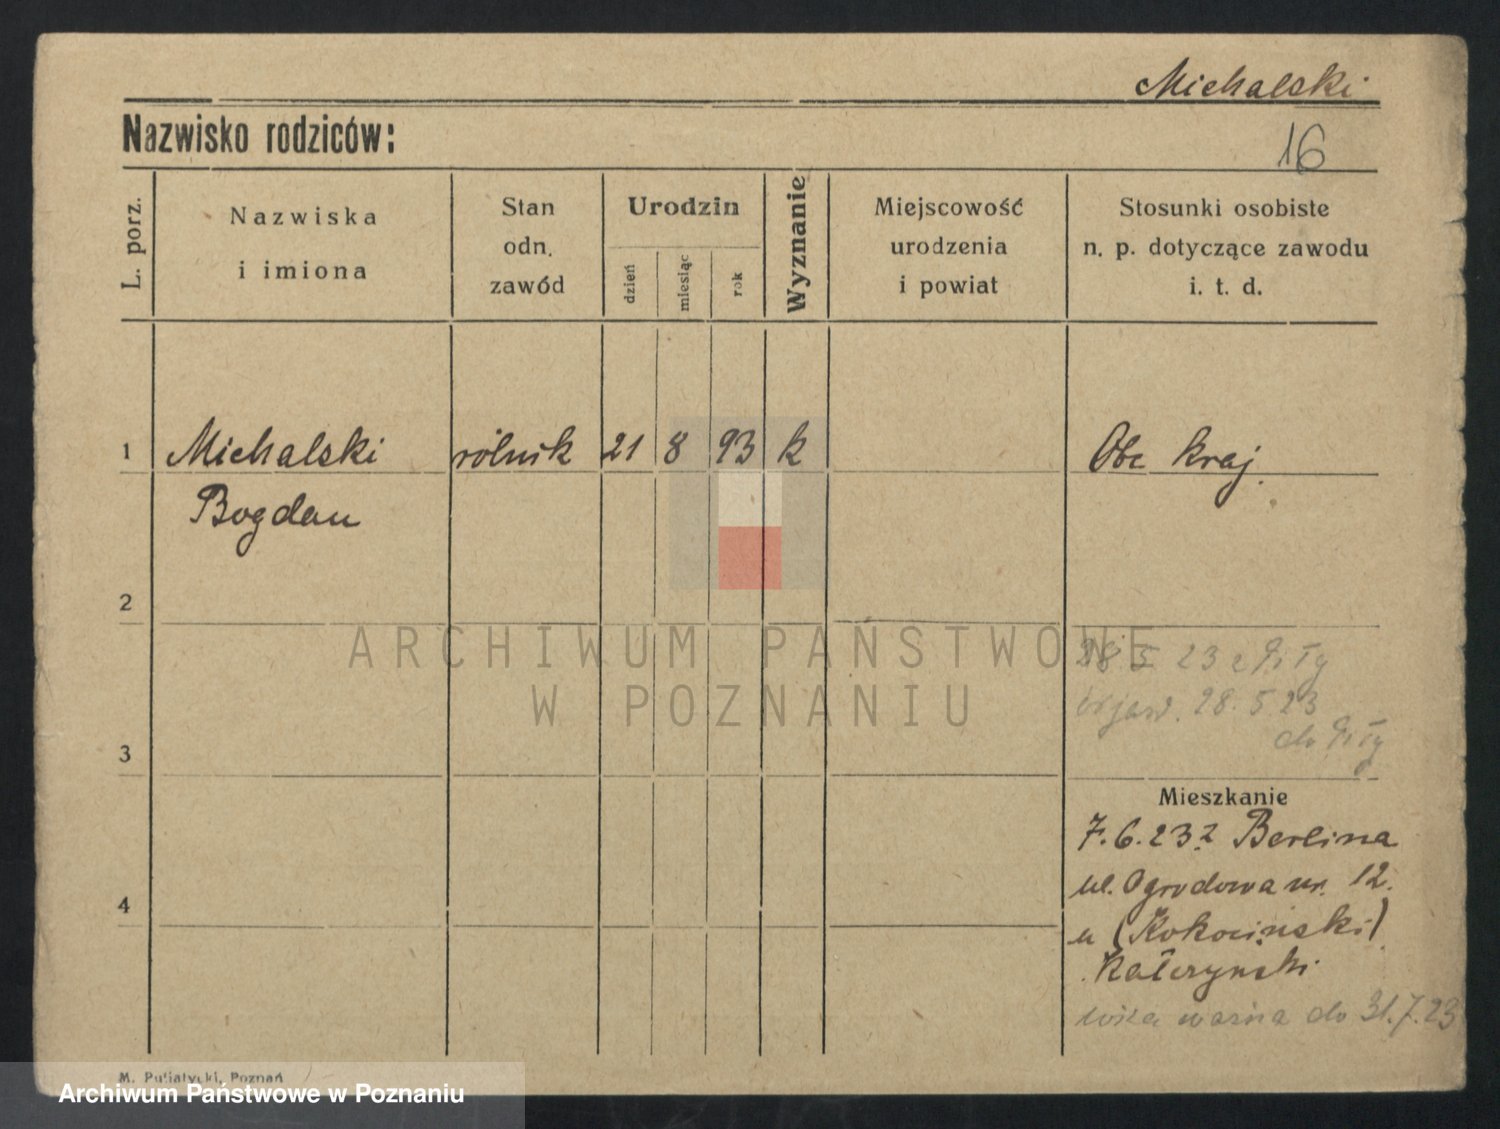 Michalski
Nazwisko rodziców:
16
L. porz.
Nazwiska
i imiona
Stan
odn.
zawód
Urodzin
dzień
miesiąc
rok
Wyznanie
Miejscowość
urodzenia
i powiat
Stosunki osobiste
n. p. dotyczące zawodu
i. t. d.
1 Michalski rólnik 21 8 93 k Obc kraj.
Bogdan
2
ARCHIWUM PAŃSTWOWE
W POZNANIU
28 5 23 z Piły
wyjazd. 28. 5 23
do Piły
3
Mieszkanie
7. 6. 23 z Berlina
ul. Ogrodowa nr. 12.
u (Kokociński)
Kałczyński
wiza ważna do 31. 7. 23
4
M. Putiatycki, Poznań
Archiwum Państwowe w Poznaniu